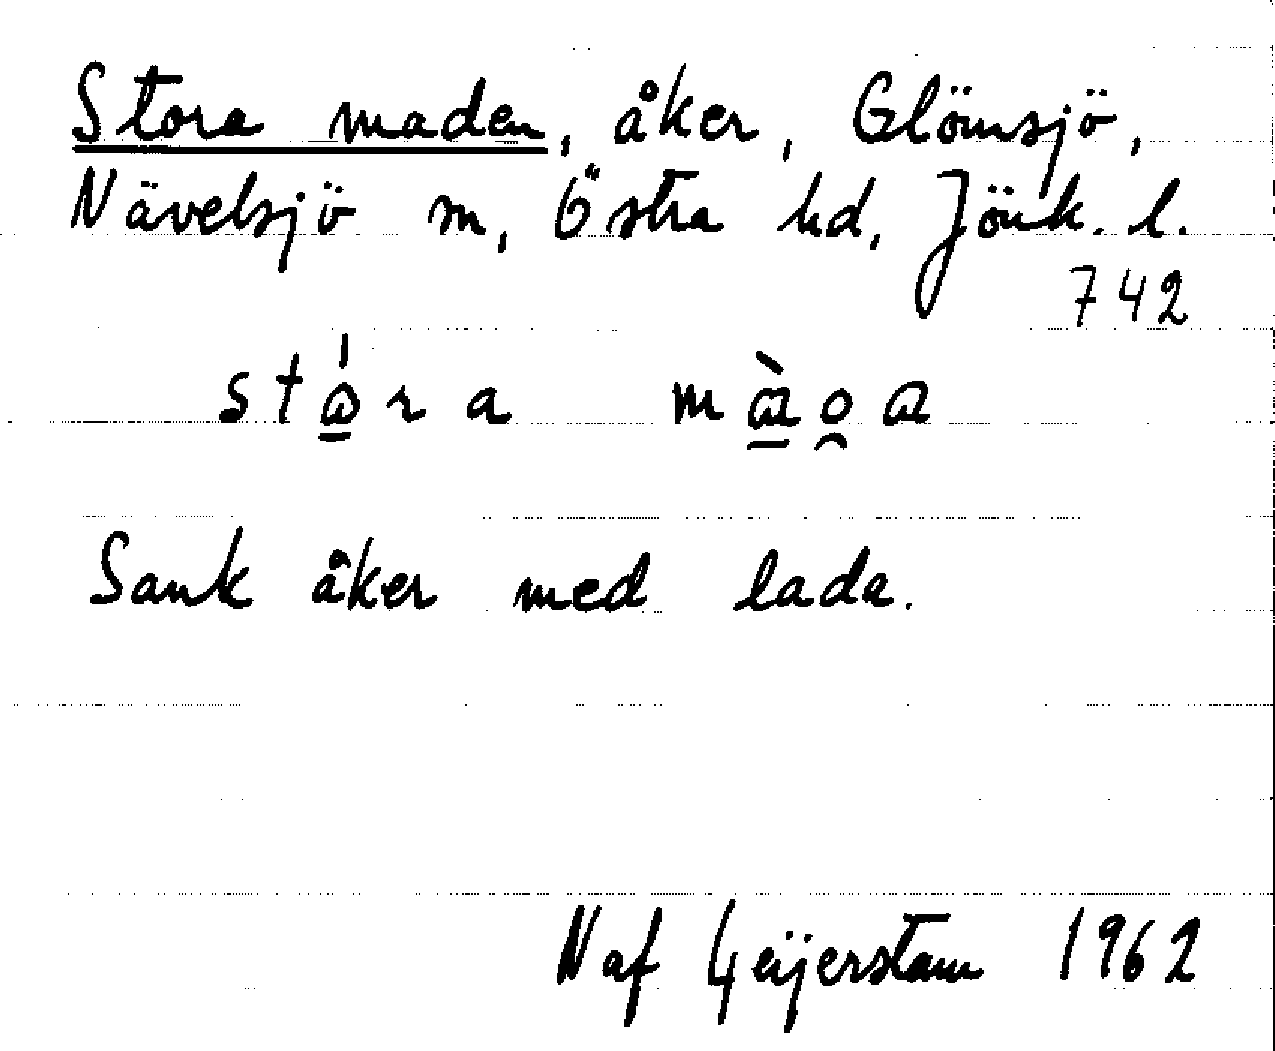 Stora maden, åker, Glömsjö,
Nävelsjö sn, Östra hd, Jönk. l.
742
Sank åker med lada.
N af Geijerstam 1962